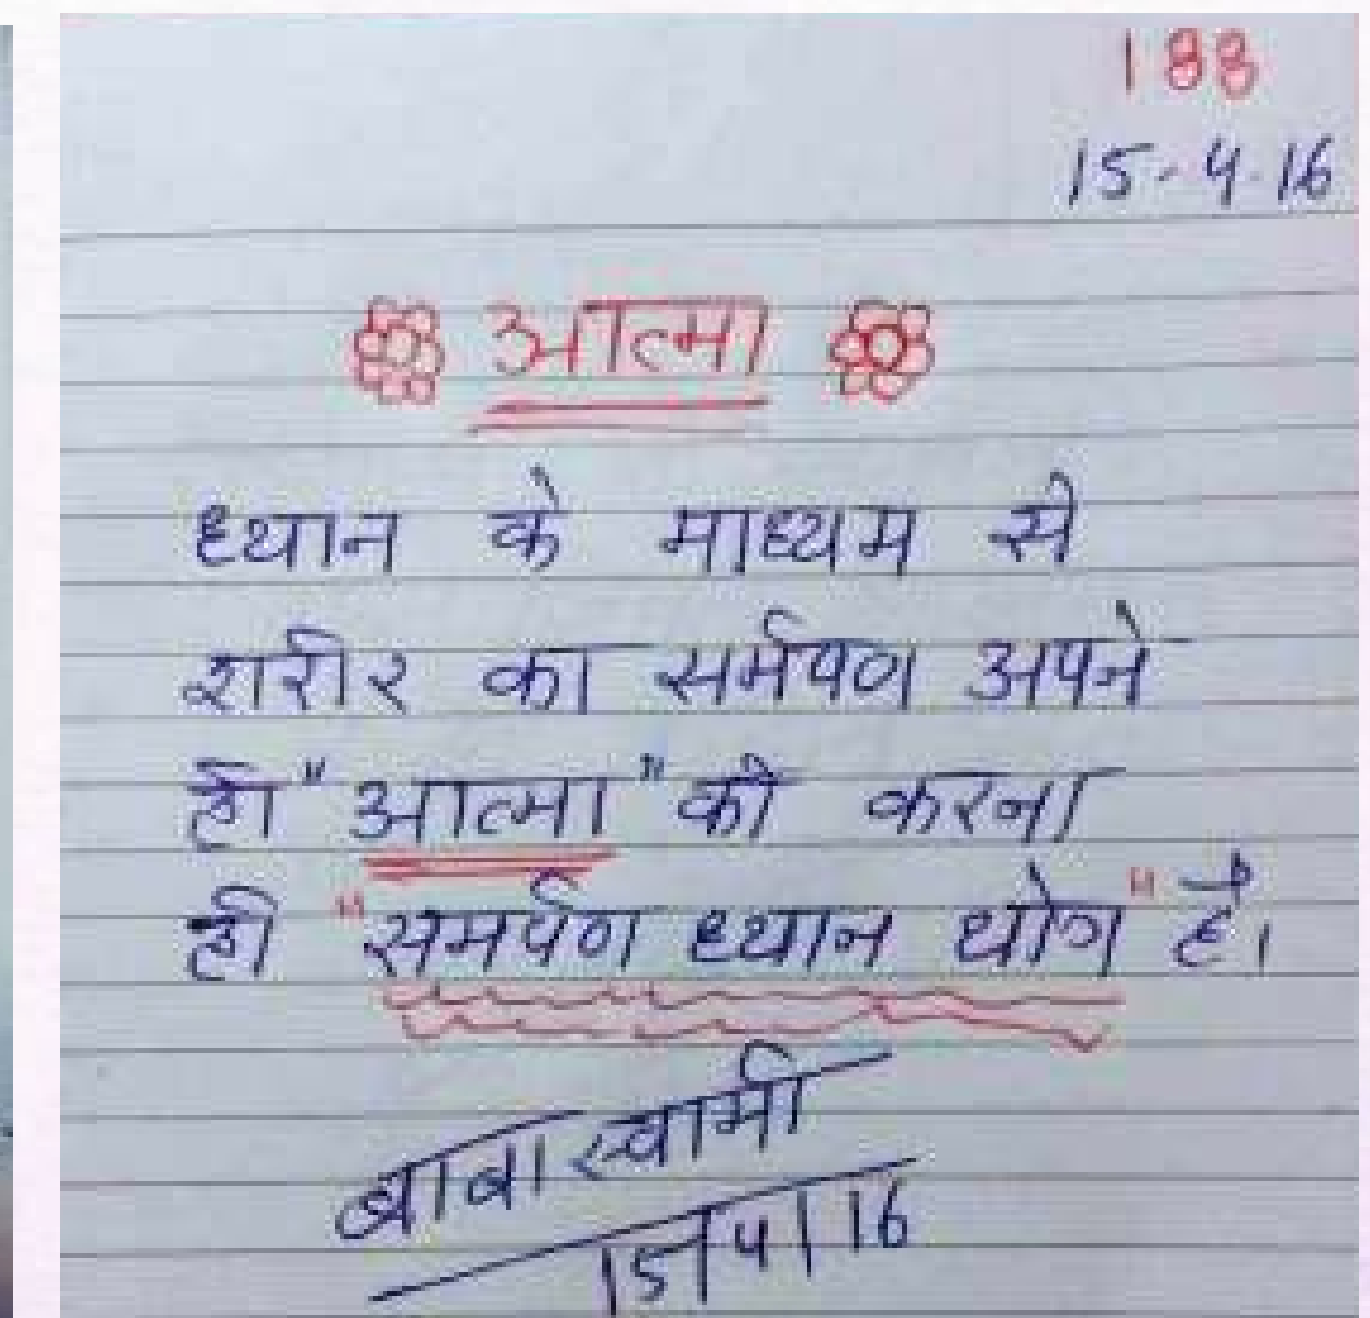 188
15-4-16
आत्मा
ध्यान के माध्यम से
शरीर का सर्मपण अपने
ही "आत्मा" को करना
ही "समर्पण ध्यान योग" है।
बाबा स्वामी
15/4/16